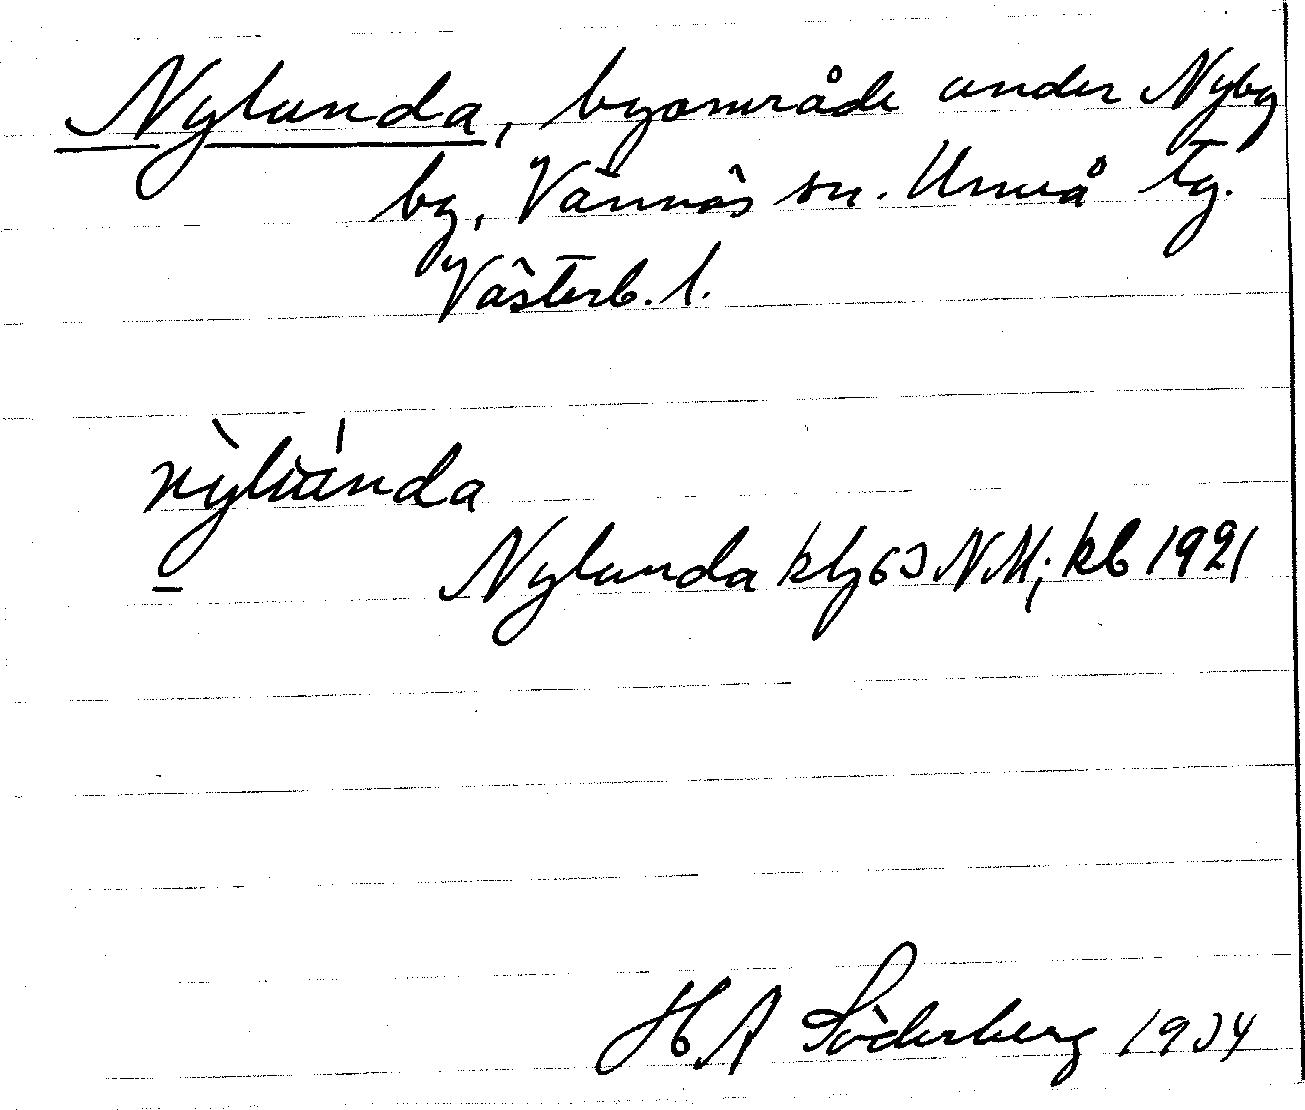 Nylunda, byområde under Nyby
by, Vännäs sn. Umeå tg.
Västerb. l.
nỳlúnda
Nylunda kbl 63 NM; kb 1921
H A Söderberg 1934